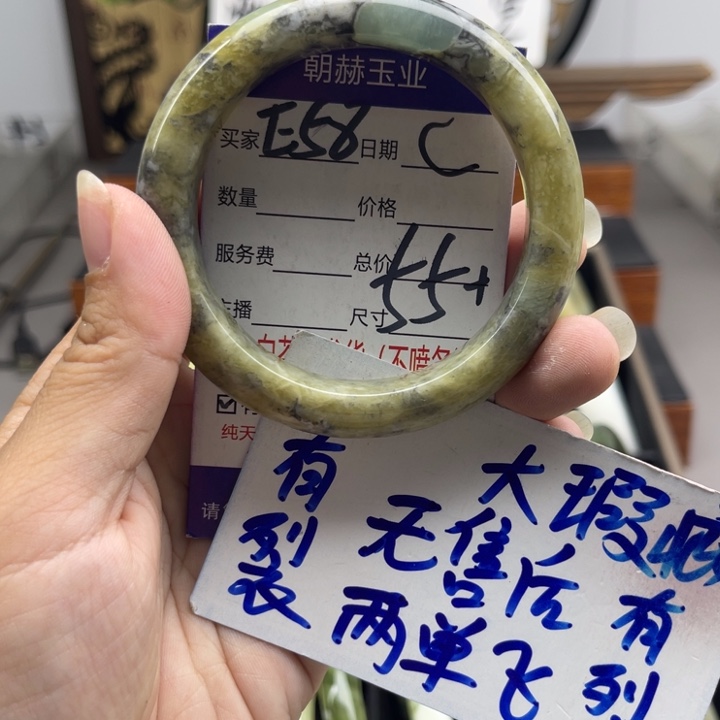 朝赫玉业
买家 E58 日期 C
数量 价格
服务费 总价
主播 尺寸 55+
纯天
请
有列裂
大瑕
无售后
两单飞
有列